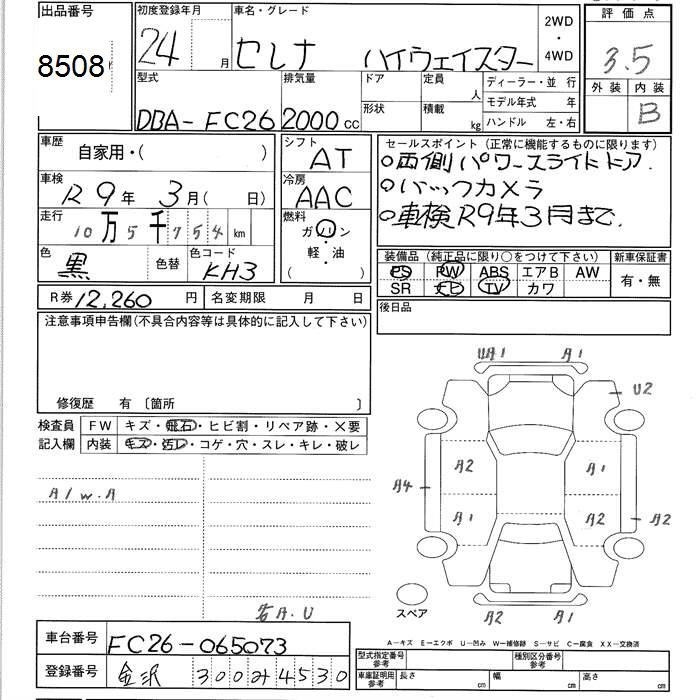 出品番号 初度登録年月 車名・グレード 2WD 評価点
8508 24 月 セレナ ハイウェイスター ・ 4WD 3.5
型式 排気量 ドア 定員 人 ディーラー・並行 外装 内装
DBA-FC26 2000 cc 形状 積載 kg モデル年式 年 B
ハンドル 左・右
車歴 自家用・( ) シフト AT セールスポイント(正常に機能するものに限ります)
車検 R9年 3月( 日) 冷房 AAC ○両側パワースライドドア.
走行 10万5千754 km 燃料 ガソリン ○バックカメラ
軽・油 ○車検R9年3月まで.
色 黒 色替 色コード KH3 ( )
装備品(純正品に限り○をつけて下さい) 新車保証書
PS PW ABS エアB AW 有・無
SR ナビ TV カワ
R券 12,260 円 名変期限 月 日 後日品
注意事項申告欄(不具合内容等は具体的に記入して下さい)
修復歴 有 〔箇所 〕
検査員 FW キズ・飛石・ヒビ割・リペア跡・✕要
記入欄 内装 キズ・汚レ・コゲ・穴・スレ・キレ・破レ
UA1 A1
U2
A2 A1
A4
A1 A2 A2
A/W.A
スペア
A2 A1
若A.U
A-キズ E-エクボ U-凹み W-補修跡 S-サビ C-腐食 XX-交換済
車台番号 FC26-065073
型式指定番号 参考 種別区分番号 参考
登録番号 金沢 300 み 4530
車庫証明用 参考 長さ cm 幅 cm 高さ cm